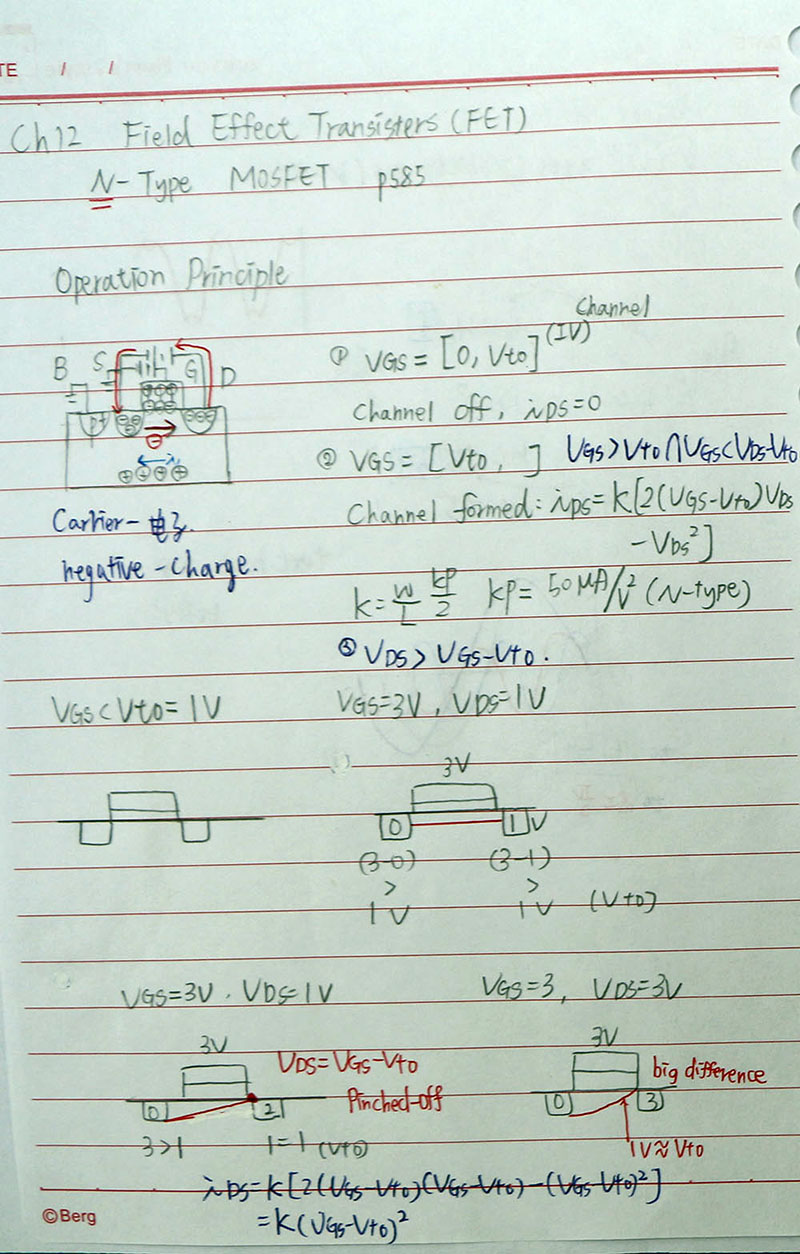 TE / /
Ch12 Field Effect Transisters (FET)
N-Type MOSFET p585
Operation Principle
Channel
B S G D
① VGS = [0, Vto] (1V)
Channel off, iDS=0
② VGS = [Vto, ] VGS>Vto∩VGS<VDS-Vto
Carrier-电子
negative-charge.
Channel formed: iDS=K[2(VGS-Vto)VDS
-VDS²]
K=W/L KP/2 KP= 50μA/V² (N-type)
③ VDS> VGS-Vto.
VGS<Vto= 1V
VGS=3V, VDS=1V
3V
0 1V
(3-0) (3-1)
> >
1V 1V (Vto)
VGS=3V. VDS=1V
VGS=3, VDS=3V
3V
VDS=VGS-Vto
Pinched-off
0 2
3>1 1=1 (Vto)
3V
big difference
0 3
1V≈Vto
iDS=K[2(VGS-Vto)(VGS-Vto)-(VGS-Vto)²]
=K(VGS-Vto)²
©Berg